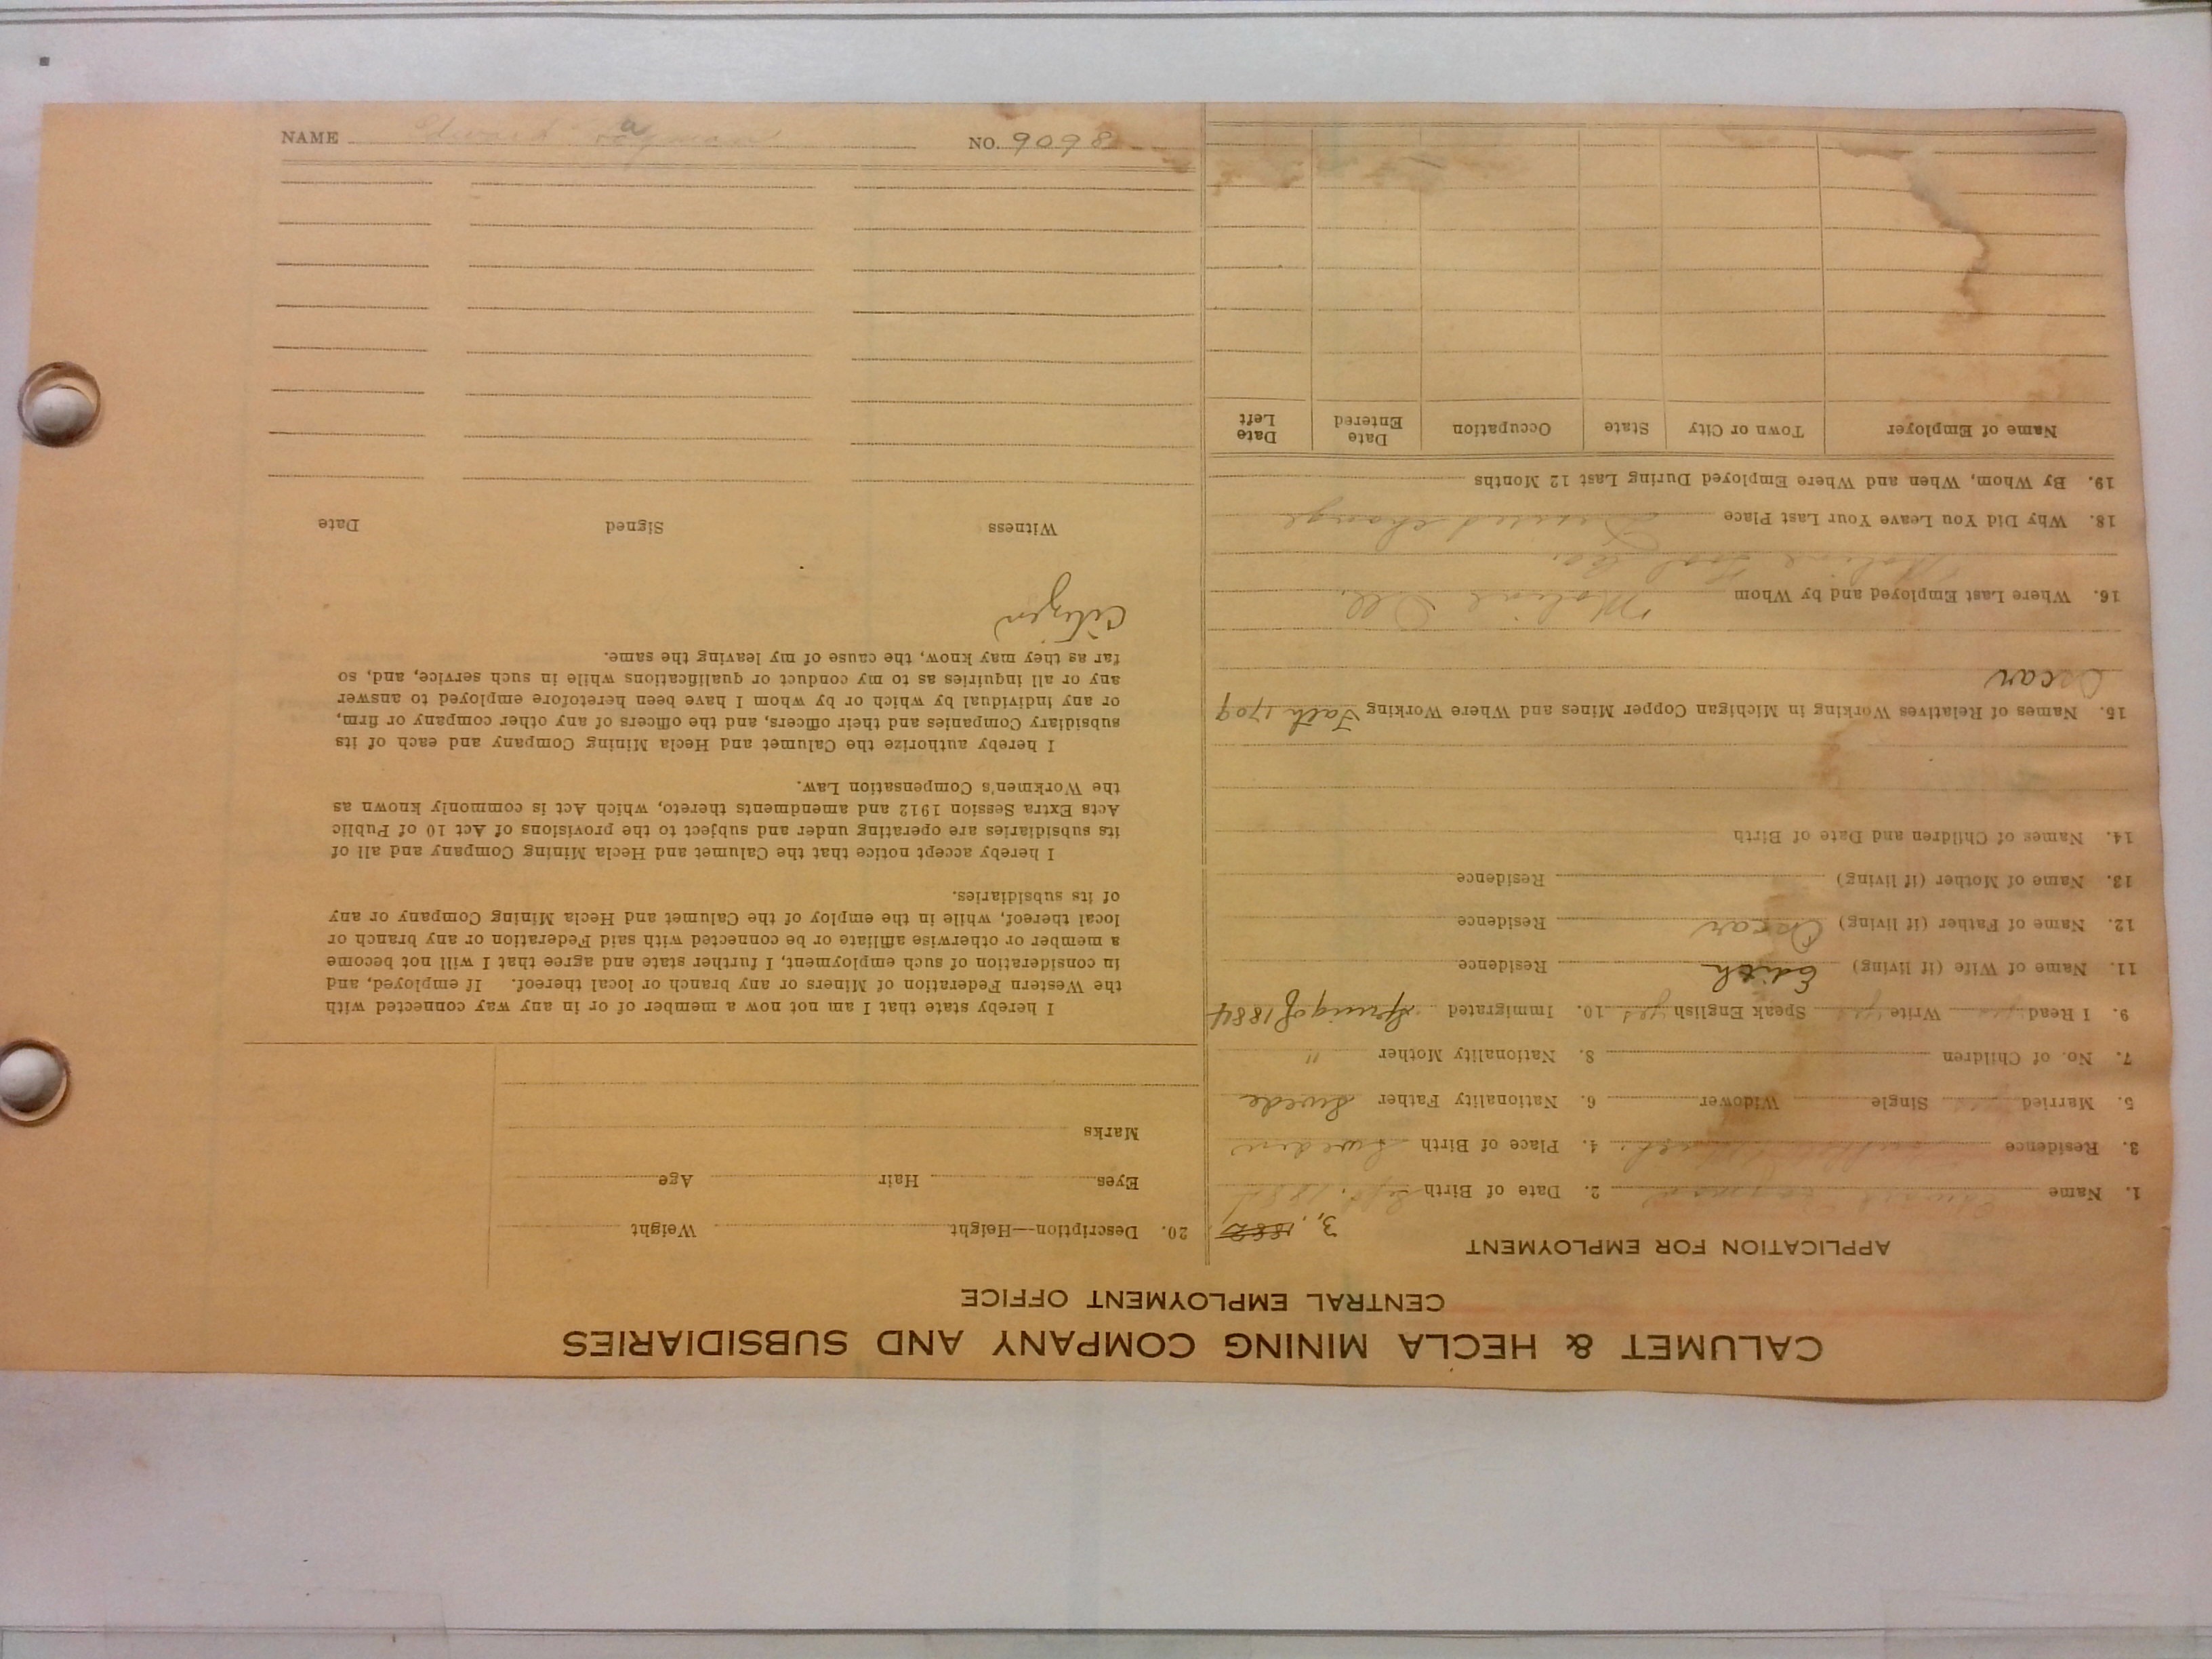 CALUMET & HECLA MINING COMPANY AND SUBSIDIARIES
CENTRAL EMPLOYMENT OFFICE
APPLICATION FOR EMPLOYMENT
3, 1882
1. Name Edward 2. Date of Birth Sept. 1881
3. Residence 4. Place of Birth Sweden
5. Married Single Widower 6. Nationality Father Swede
7. No. of Children 8. Nationality Mother "
9. I Read yes Write yes Speak English yes 10. Immigrated Spring of 1884
11. Name of Wife (if living) Edith Residence
12. Name of Father (if living) Oscar Residence
13. Name of Mother (if living) Residence
14. Names of Children and Date of Birth
15. Names of Relatives Working in Michigan Copper Mines and Where Working Fath 1709
Oscar
16. Where Last Employed and by Whom Moline Ill.
Moline Tool Co.
18. Why Did You Leave Your Last Place Desired change
19. By Whom, When and Where Employed During Last 12 Months
Name of Employer Town or City State Occupation Date Entered Date Left
20. Description—Height Weight
Eyes Hair Age
Marks
I hereby state that I am not now a member of or in any way connected with
the Western Federation of Miners or any branch or local thereof. If employed, and
in consideration of such employment, I further state and agree that I will not become
a member or otherwise affiliate or be connected with said Federation or any branch or
local thereof, while in the employ of the Calumet and Hecla Mining Company or any
of its subsidiaries.
I hereby accept notice that the Calumet and Hecla Mining Company and all of
its subsidiaries are operating under and subject to the provisions of Act 10 of Public
Acts Extra Session 1912 and amendments thereto, which Act is commonly known as
the Workmen's Compensation Law.
I hereby authorize the Calumet and Hecla Mining Company and each of its
subsidiary Companies and their officers, and the officers of any other company or firm,
or any individual by which or by whom I have been heretofore employed to answer
any or all inquiries as to my conduct or qualifications while in such service, and, so
far as they may know, the cause of my leaving the same.
Citizen
Witness Signed Date
NAME Edward NO. 9098